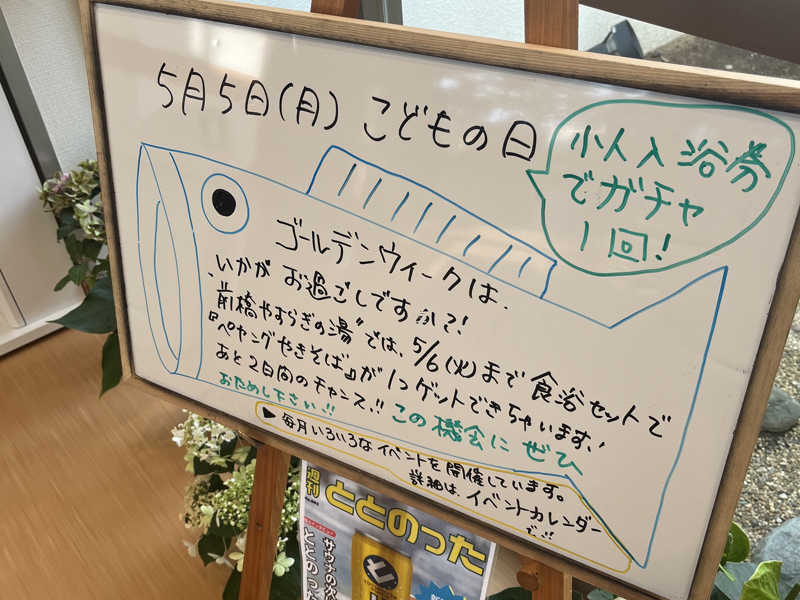 5月5日(月) こどもの日
小人入浴券
でガチャ
1回!
ゴールデンウィークは、
いかがお過ごしですか?!
"前橋やすらぎの湯"では、5/6(火)まで食浴セットで
『ペヤングやきそば』が1コゲットできちゃいます!
あと2日間のチャンス!! この機会にぜひ
おためし下さい!!
▶ 毎月いろいろなイベントを開催しています。
詳細は、イベントカレンダー
で!!
週刊
ととのった
サウナの次
ととのった